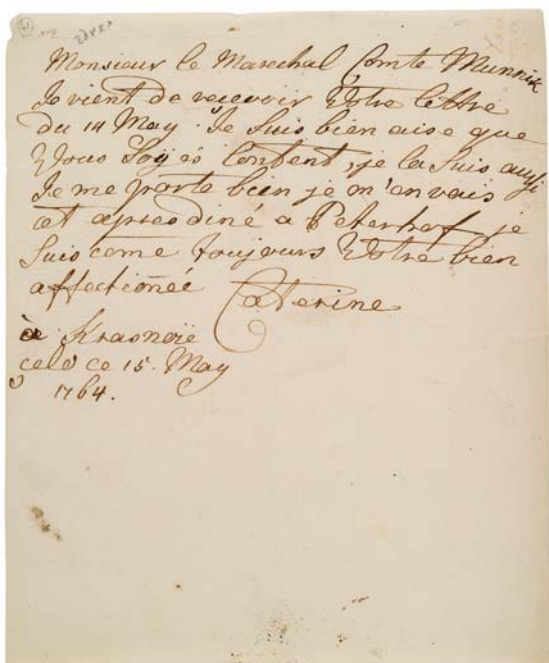 Monsieur le Marechal Comte Munnik
Je vient de recevoir Votre lettre
du 14 May Je suis bien aise que
Vous Soyés Content, je la suis aussi
Je me porte bien je m'en vais
cet apres diné a Peterhof, je
suis come toujours Votre bien
affectionéé Caterine
à Krasnoïe
celo ce 15. May
1764.